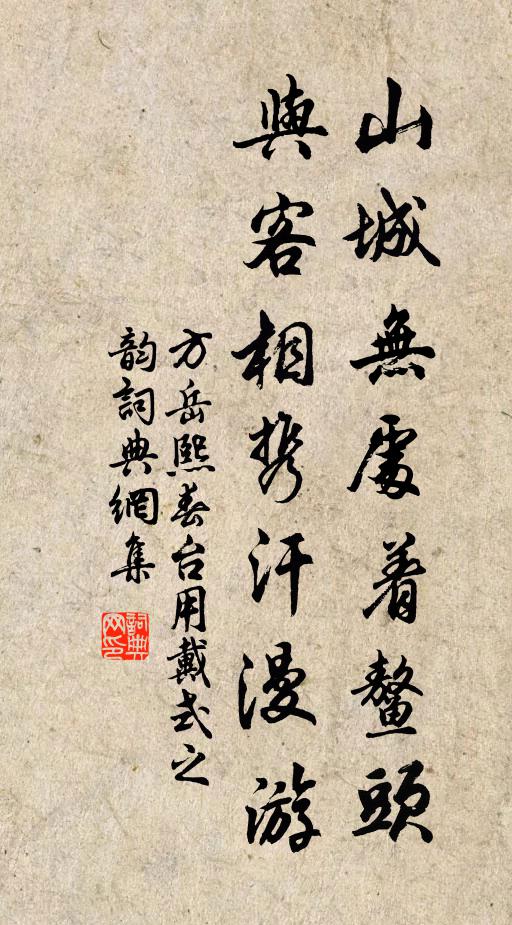 山城無處着鰲頭
與客相携汗漫游
方岳熙春台用戴式之
韵詞典網集
詞典网印